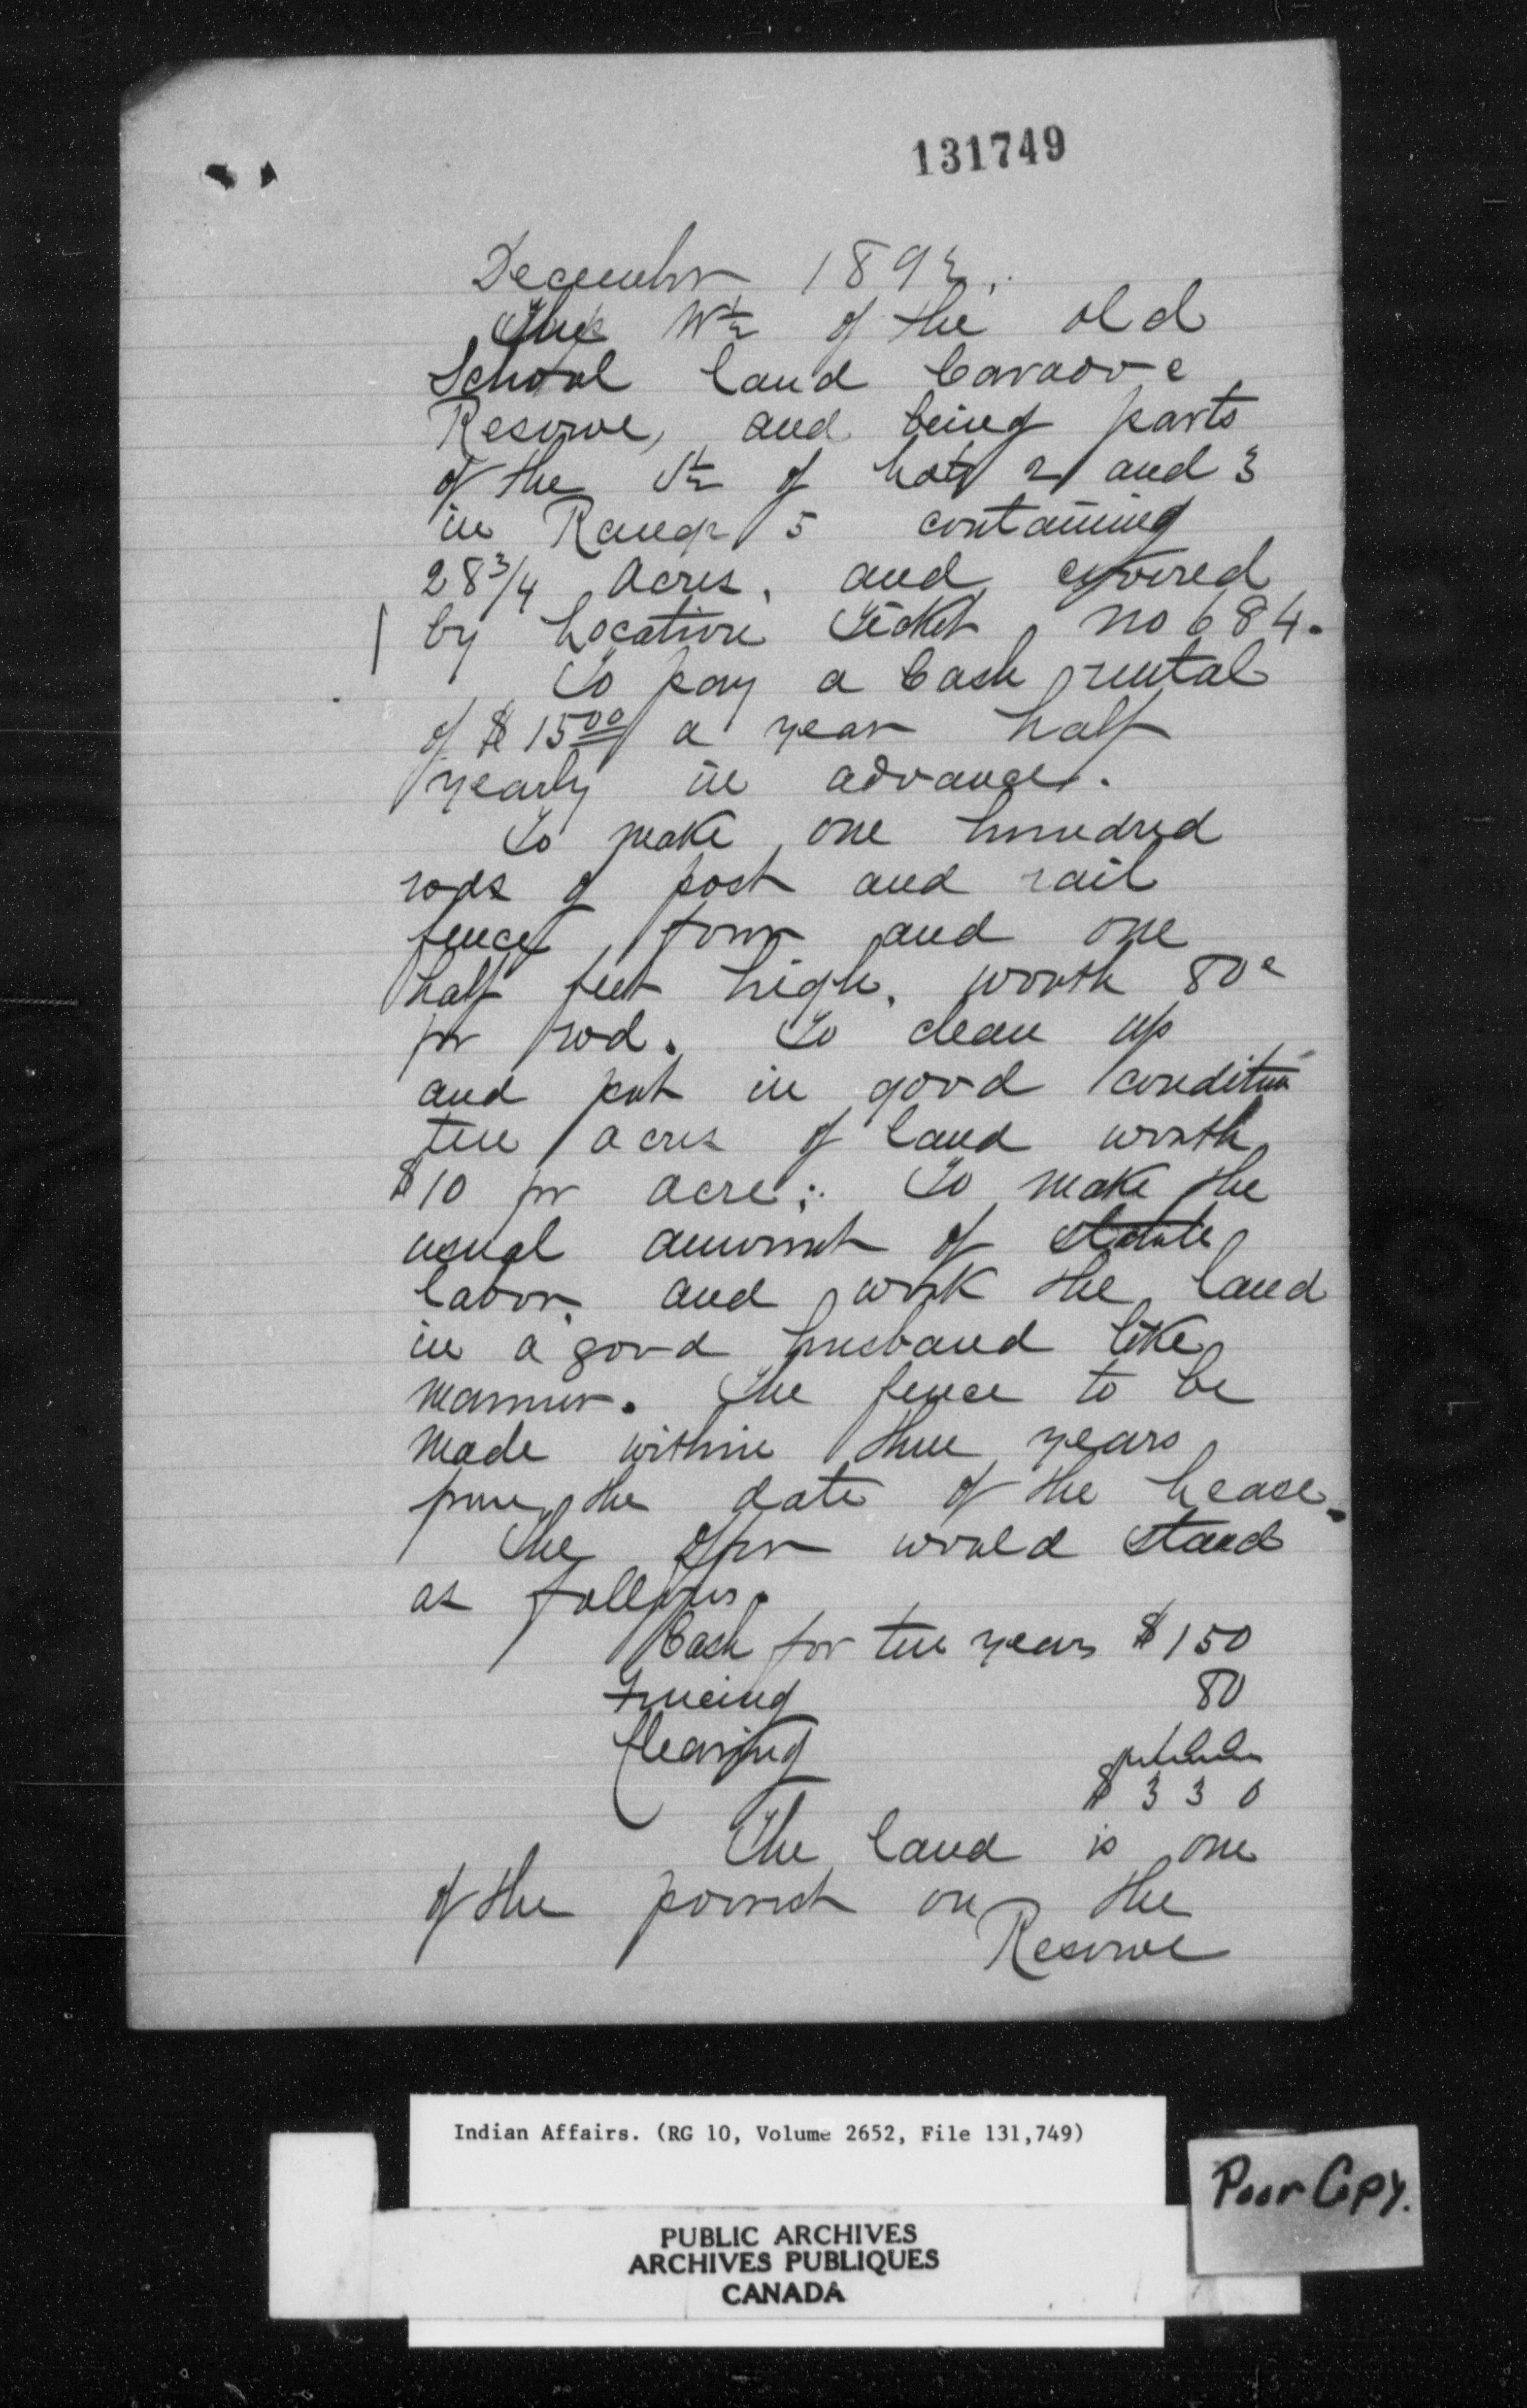 131749
December 1893.
The W½ of the old
School land Caradoc
Reserve, and being parts
of the S½ of Lots 2 and 3
in Range 5 containing
28 3/4 acres, and covered
by Location Ticket no 684.
To pay a Cash rental
of $15 00 a year half
yearly in advance.
To make one hundred
rods of post and rail
fence four and one
half feet high, worth 80c
per rod. To clean up
and put in good condition
ten acres of land worth
$10 per acre; To make the
usual amount of statute
labor, and work the land
in a good husband like
manner. The fence to be
made within three years
from the date of the Lease.
The offer would stand
as follows.
Cash for ten years $150
Fencing 80
Clearing
$330
The land is one
of the poorest on the
Reserve
Indian Affairs. (RG 10, Volume 2652, File 131,749)
Poor Copy.
PUBLIC ARCHIVES
ARCHIVES PUBLIQUES
CANADA